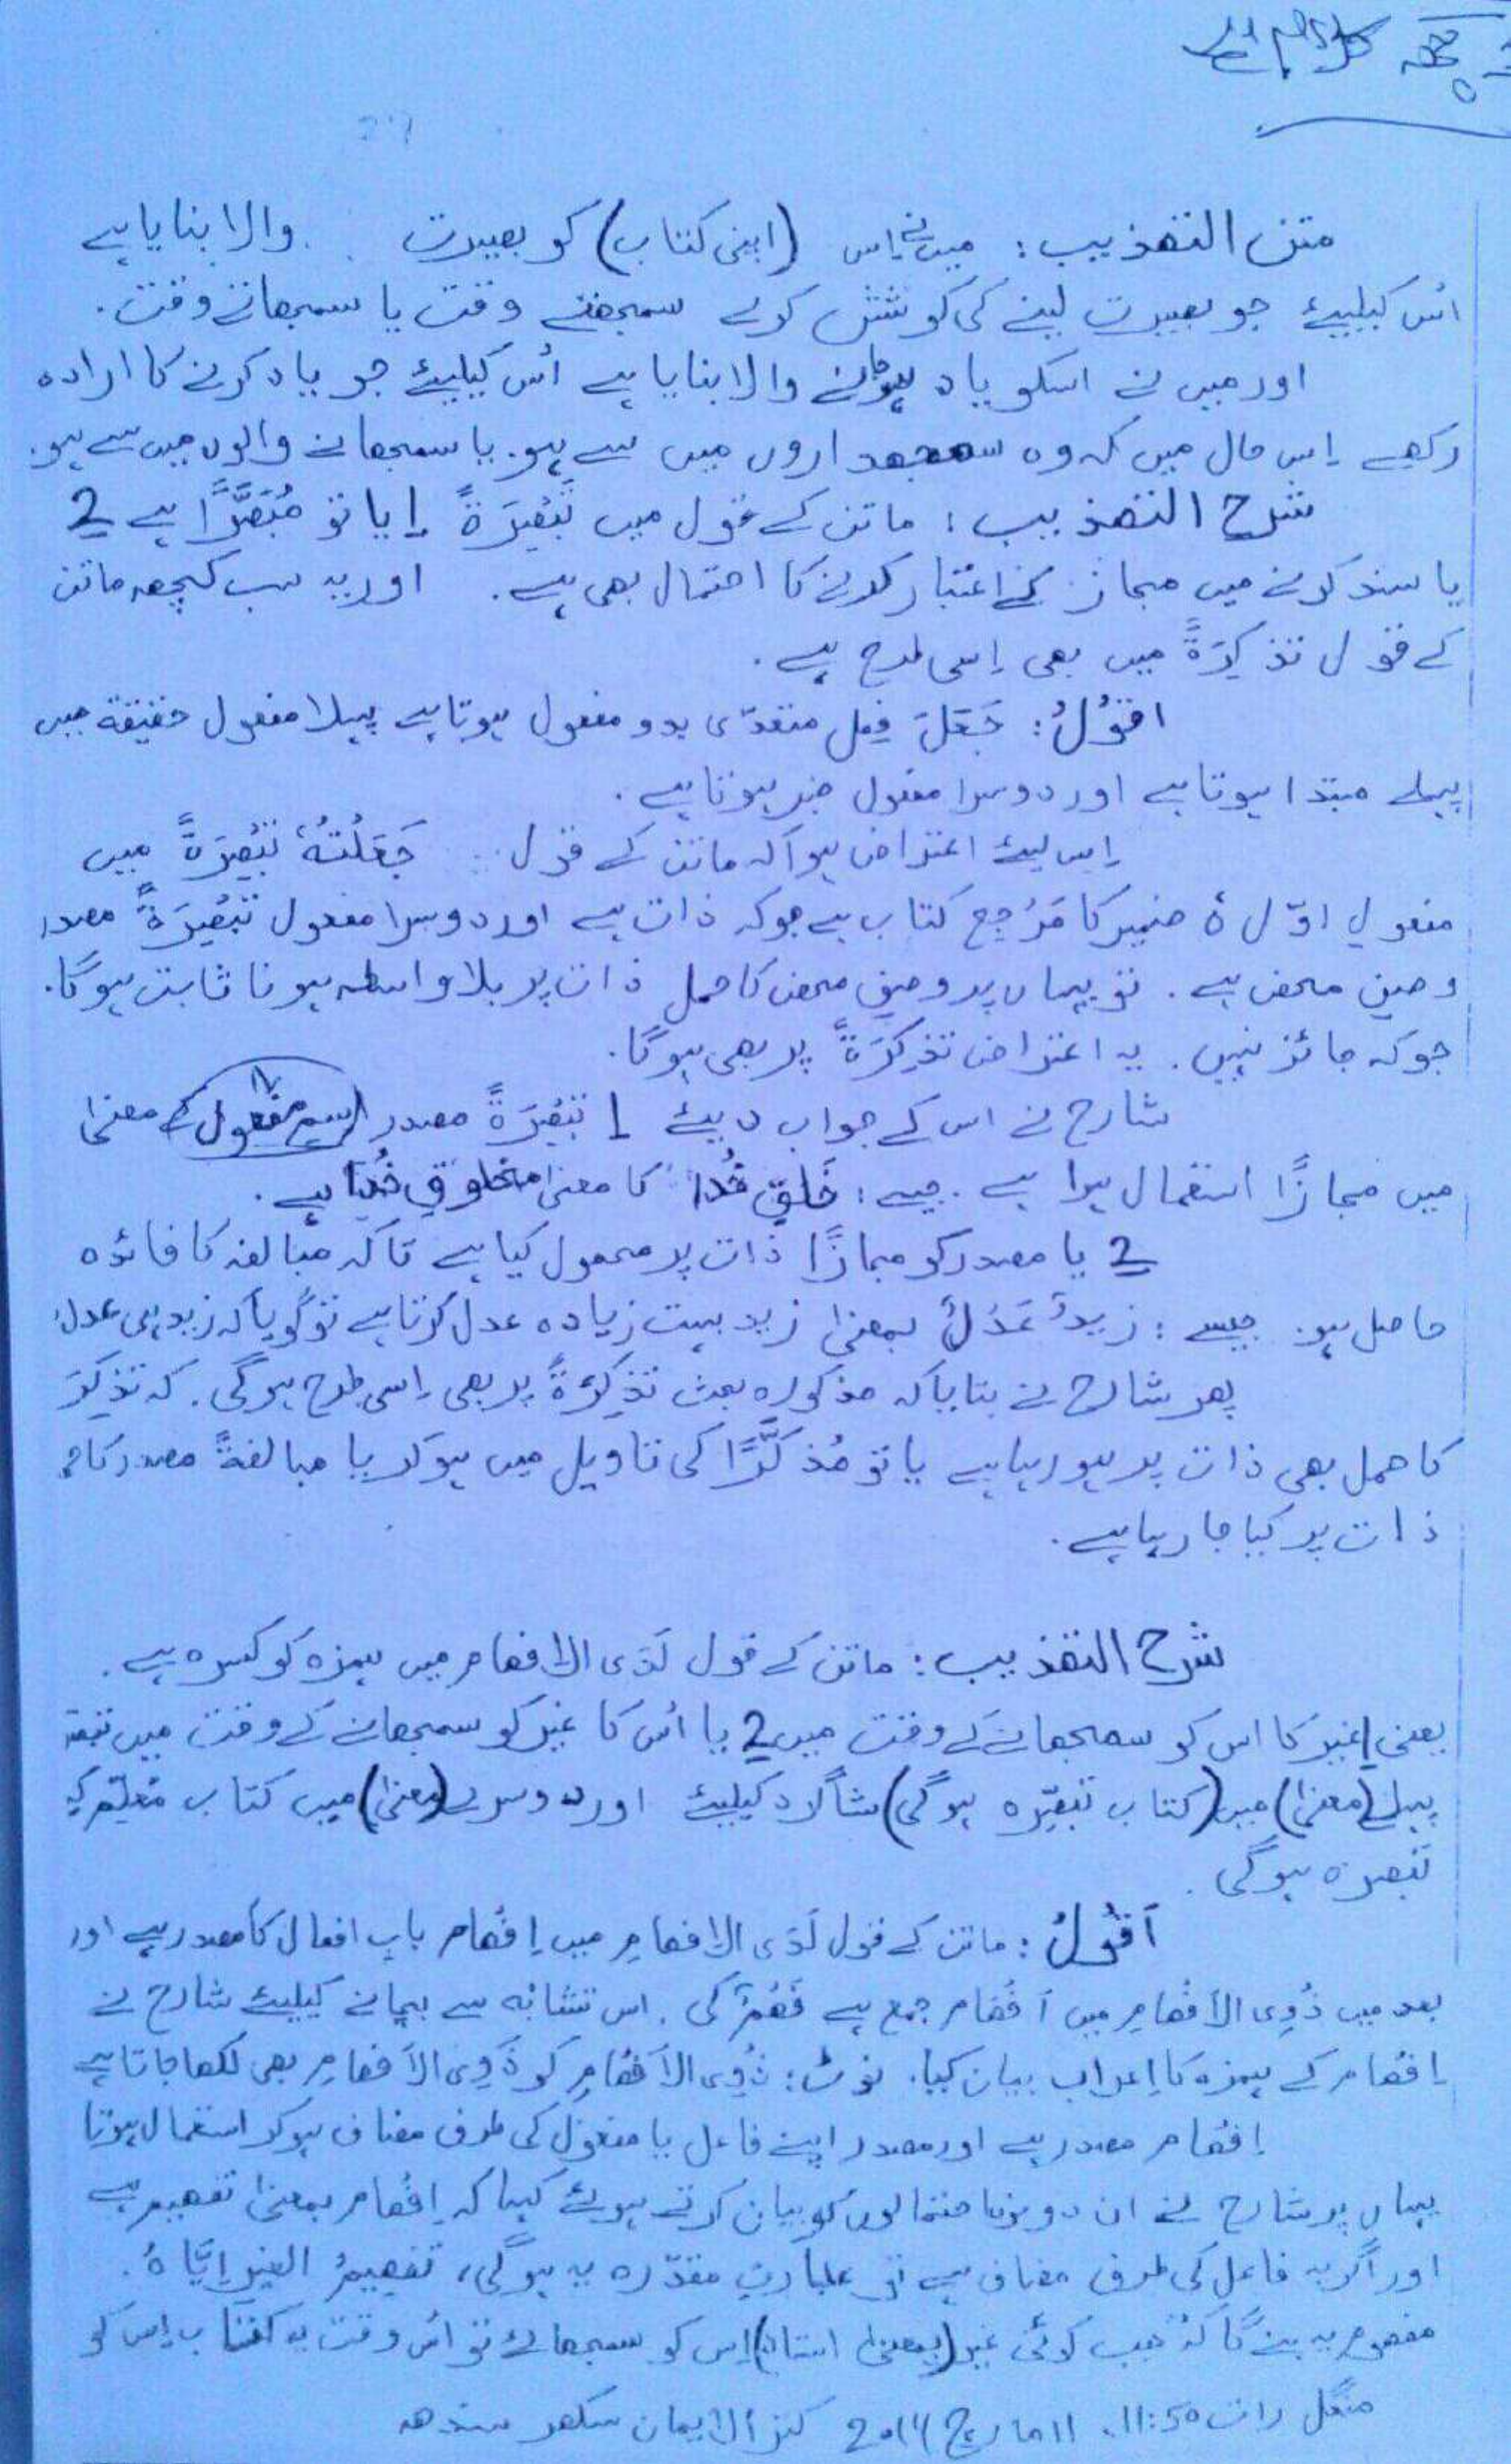 متن التهذیب: میں نے اس (اپنی کتاب) کو بصیرت والا بنایا ہے
اُس کیلیئے جو بصیرت لینے کی کوشش کرے سمجھتے وقت یا سمجھاتے وقت.
اور میں نے اسکو یاد ہوجانے والا بنایا ہے اُس کیلیئے جو یاد کرنے کا ارادہ
رکھے اِس حال میں کہ وہ سمجھداروں میں سے ہو. یا سمجھانے والوں میں سے ہو.
شرح التھذیب: ماتن کے قول میں تَبْصِرَةً 1 یا تو مُبَصِّرًا ہے 2
یا سند کرنے میں مجاز کے اعتبار کرنے کا احتمال بھی ہے. اور یہ سب کچھ ماتن
کے قول تذکِرَةً میں بھی اِسی طرح ہے.
اقُوْلُ: جَعَلَ فِعل متعدّی بدو مفعول ہوتا ہے پہلا مفعول حقیقۃ میں
پہلے مبتدا ہوتا ہے اور دوسرا مفعول خبر ہوتا ہے.
اِس لیئے اعتراض ہوا کہ ماتن کے قول جَعَلْتُهٗ تَبْصِرَةً میں
مفعولِ اوّل ہٗ ضمیر کا مَرْجِع کتاب ہے جو کہ ذات ہے اور دوسرا مفعول تَبْصِرَةً مصدر
وصفِ محض ہے. تو یہاں پر وصفِ محض کا حمل ذات پر بلا واسطہ ہونا ثابت ہوگا.
جو کہ جائز نہیں. یہ اعتراض تذکِرَةً پر بھی ہوگا.
شارح نے اس کے جواب دیئے 1 تَبْصِرَةً مصدر اسم مفعول کے معنیٰ
میں مجازًا استعمال ہوا ہے. جیسے: خَلقِ خُدا کا معنیٰ مخلوقِ خُدا ہے.
2 یا مصدر کو مجازًا ذات پر محمول کیا ہے تاکہ مبالغہ کا فائدہ
حاصل ہو. جیسے: زیدٌ عَدْلٌ بمعنیٰ زید بہت زیادہ عدل کرتا ہے تو گویا کہ زید ہی عدل
پھر شارح نے بتایا کہ مذکورہ بحث تذکِرَةً پر بھی اِسی طرح ہوگی. کہ تذکِرَ
کا حمل بھی ذات پر ہو رہا ہے یا تو مُذکَّرًا کی تاویل میں ہو کر یا مبالغۃً مصدر کا
ذات پر کیا جا رہا ہے.
شرح التھذیب: ماتن کے قول لَدَی الاِفھام میں ہمزہ کو کسرہ ہے.
یعنی 1 غیر کا اس کو سمجھانے کے وقت میں 2 یا اُس کا غیر کو سمجھانے کے وقت میں
پہلے (معنیٰ) میں (کتاب تبصِرہ ہوگی) شاگرد کیلیئے اور دوسرے (معنیٰ) میں کتاب مُعَلِّم
تبصرہ ہوگی.
اَقُوْلُ: ماتن کے قول لَدَی الاِفھامِ میں اِفْھام بابِ افعال کا مصدر ہے اور
بعد میں ذَوِی الاَفْھامِ میں اَفْھام جمع ہے فَھْمٌ کی. اس تشابُه سے بچانے کیلیئے شارح نے
اِفْھام کے ہمزہ کا اِعراب بیان کیا. نوٹ: ذَوِی الاَفْھامِ کو ذَوِی الاَفھامِ بھی لکھا جاتا ہے
اِفْھام مصدر ہے اور مصدر اپنے فاعل یا مفعول کی طرف مضاف ہو کر استعمال ہوتا
یہاں پر شارح نے ان دونوں احتمالوں کو بیان کرتے ہوئے کہا کہ اِفْھام بمعنیٰ تفھیم ہے
اور اگر یہ فاعل کی طرف مضاف ہے تو عبارتِ مقدّرہ یہ ہوگی، تفھیمُ الغیرِ اِیَّاهُ.
مفھوم یہ بنے گا کہ جب کوئی غیر (بمعنیٰ استاد) اِس کو سمجھائے تو اُس وقت یہ کتاب اِس کو
منگل رات 11:50. 11 مارچ 2014 کنز الایمان سکھر سندھ